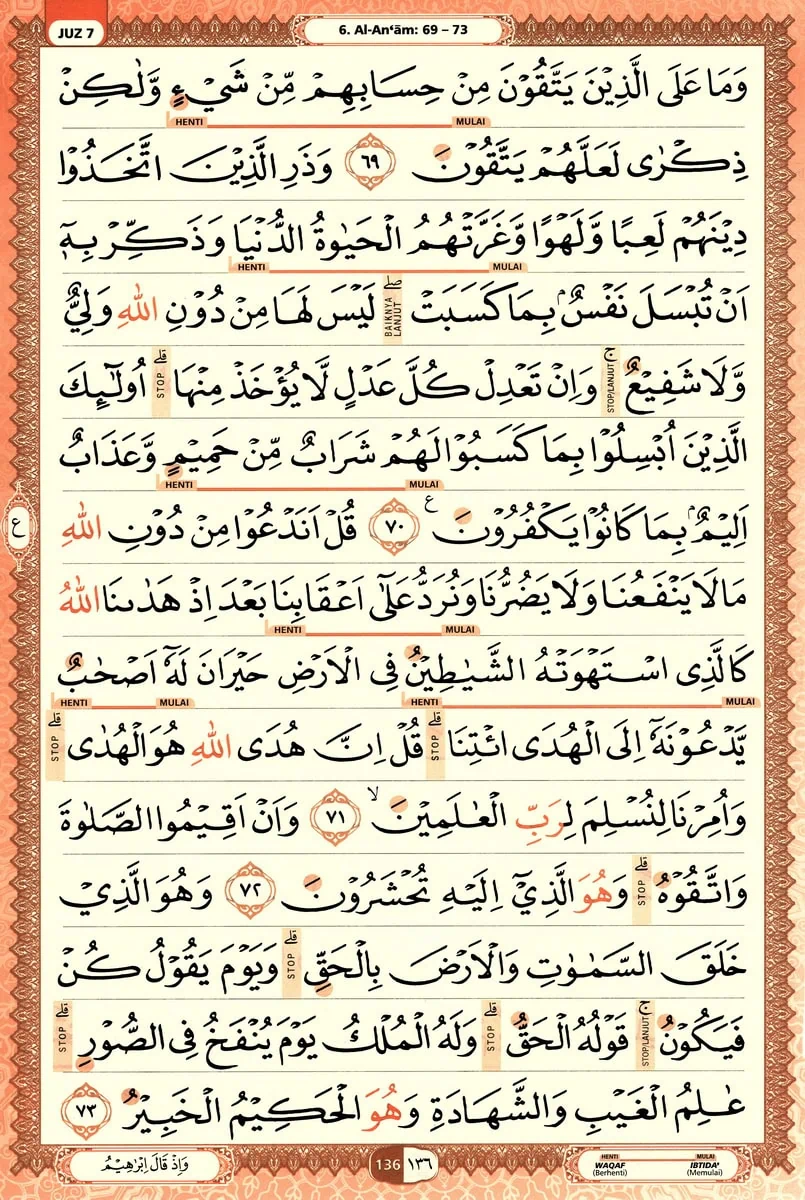 JUZ 7
6. Al-An‘ām: 69 – 73
وَمَا عَلَى الَّذِيْنَ يَتَّقُوْنَ مِنْ حِسَابِهِمْ مِّنْ شَيْءٍ وَّلٰكِنْ
HENTI MULAI
ذِكْرٰى لَعَلَّهُمْ يَتَّقُوْنَ ٦٩ وَذَرِ الَّذِيْنَ اتَّخَذُوْا
دِيْنَهُمْ لَعِبًا وَّلَهْوًا وَّغَرَّتْهُمُ الْحَيٰوةُ الدُّنْيَا وَذَكِّرْ بِهٖٓ
HENTI MULAI
اَنْ تُبْسَلَ نَفْسٌۢ بِمَا كَسَبَتْ ۖ BAIKNYA LANJUT لَيْسَ لَهَا مِنْ دُوْنِ اللّٰهِ وَلِيٌّ
وَّلَا شَفِيْعٌ ۚ STOP/LANJUT وَاِنْ تَعْدِلْ كُلَّ عَدْلٍ لَّا يُؤْخَذْ مِنْهَا ۗ STOP اُولٰۤىِٕكَ
الَّذِيْنَ اُبْسِلُوْا بِمَا كَسَبُوْا لَهُمْ شَرَابٌ مِّنْ حَمِيْمٍ وَّعَذَابٌ
HENTI MULAI
اَلِيْمٌۢ بِمَا كَانُوْا يَكْفُرُوْنَ ع ٧٠ قُلْ اَنَدْعُوْا مِنْ دُوْنِ اللّٰهِ
ع
مَا لَا يَنْفَعُنَا وَلَا يَضُرُّنَا وَنُرَدُّ عَلٰٓى اَعْقَابِنَا بَعْدَ اِذْ هَدٰىنَا اللّٰهُ
HENTI MULAI
كَالَّذِى اسْتَهْوَتْهُ الشَّيٰطِيْنُ فِى الْاَرْضِ حَيْرَانَ لَهٗٓ اَصْحٰبٌ
HENTI MULAI HENTI MULAI
يَّدْعُوْنَهٗٓ اِلَى الْهُدَى ائْتِنَا ۗ STOP قُلْ اِنَّ هُدَى اللّٰهِ هُوَ الْهُدٰى ۗ STOP
وَاُمِرْنَا لِنُسْلِمَ لِرَبِّ الْعٰلَمِيْنَ ۙ ٧١ وَاَنْ اَقِيْمُوا الصَّلٰوةَ
وَاتَّقُوْهُ ۗ STOP وَهُوَ الَّذِيْٓ اِلَيْهِ تُحْشَرُوْنَ ٧٢ وَهُوَ الَّذِيْ
خَلَقَ السَّمٰوٰتِ وَالْاَرْضَ بِالْحَقِّ ۗ STOP وَيَوْمَ يَقُوْلُ كُنْ
فَيَكُوْنُ ۚ STOP/LANJUT قَوْلُهُ الْحَقُّ ۗ STOP وَلَهُ الْمُلْكُ يَوْمَ يُنْفَخُ فِى الصُّوْرِ ۗ STOP
عٰلِمُ الْغَيْبِ وَالشَّهَادَةِ وَهُوَ الْحَكِيْمُ الْخَبِيْرُ ٧٣
وَاِذْ قَالَ اِبْرٰهِيْمُ
136 ١٣٦
HENTI MULAI
WAQAF IBTIDA'
(Berhenti) (Memulai)